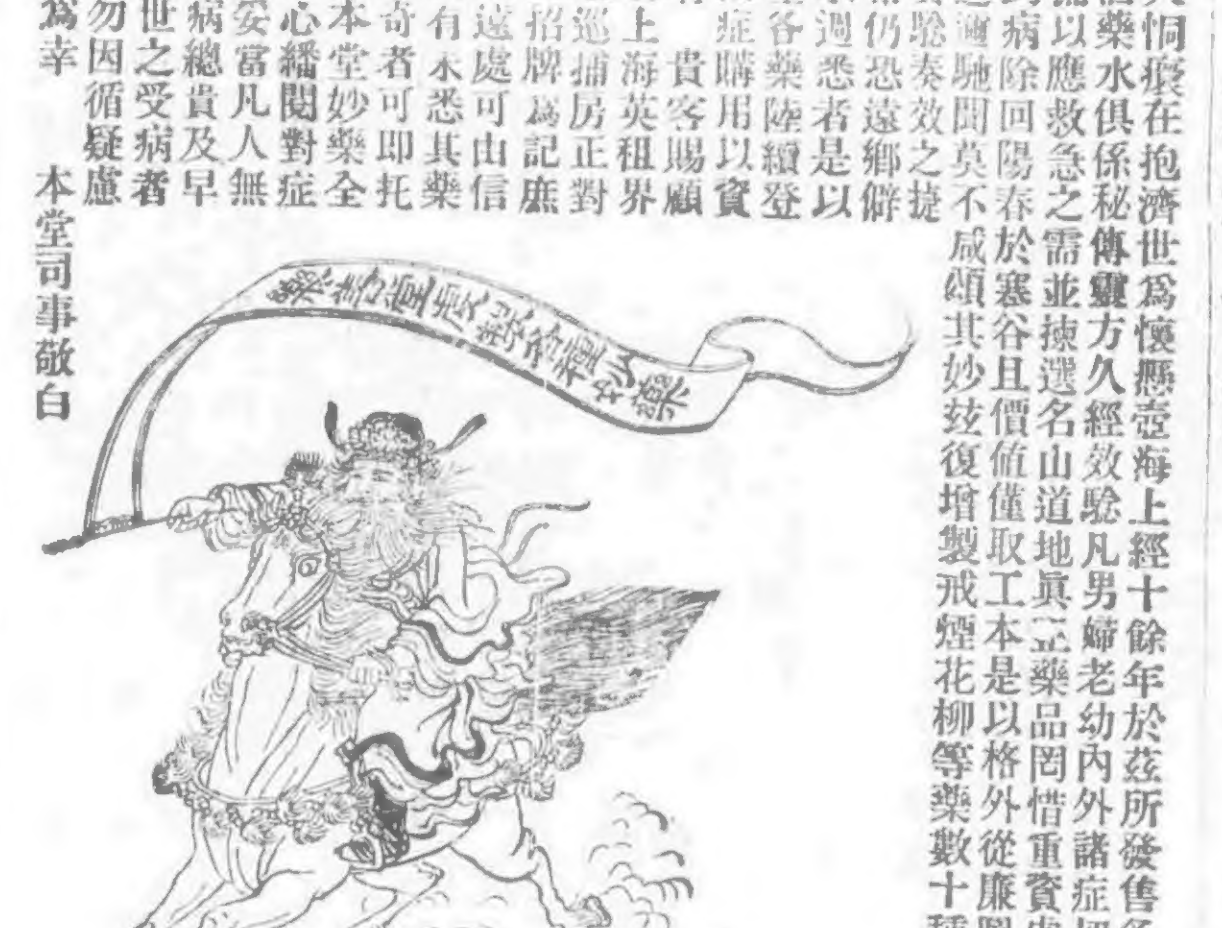 恫瘝在抱濟世爲懷懸壺海上經十餘年於茲所發售
藥水俱係秘傳靈方久經效騐凡男婦老幼內外諸症
以應救急之需並揀選名山道地眞正藥品罔惜重資
病除回陽春於寒谷且價値僅取工本是以格外從廉
邇馳聞莫不咸頌其妙茲復增製戒煙花柳等藥數十種
騐奏效之捷
仍恐遠鄉僻
週悉者是以
各藥陸續登
症購用以資
貴客賜顧
上海英租界
巡捕房正對
招牌爲記庶
遠處可由信
有未悉其藥
奇者可即托
本堂妙藥全
心繙閱對症
妄富凡人無
病總貴及早
世之受病者
勿因循疑慮
爲幸
本堂司事敬白
樂善堂虔製各種妙藥